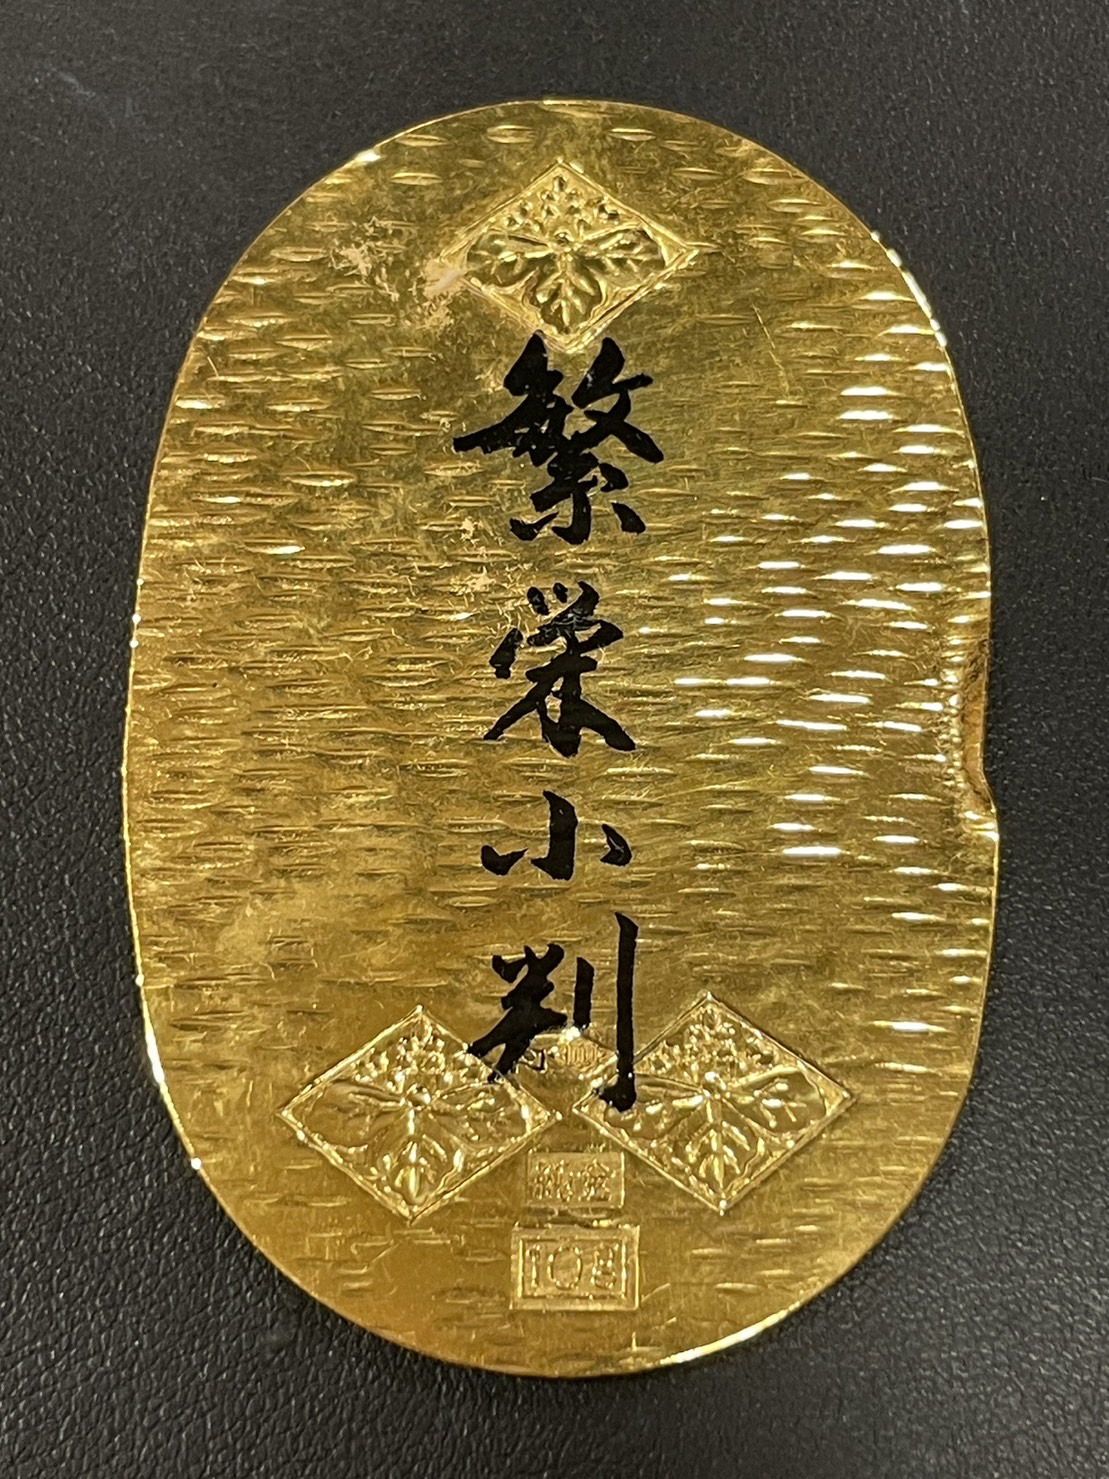 繁栄小判
純金
10g